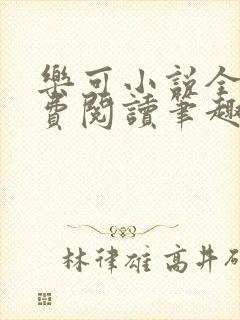 樂可小說全
費閱讀筆趣
林律雄 高井研